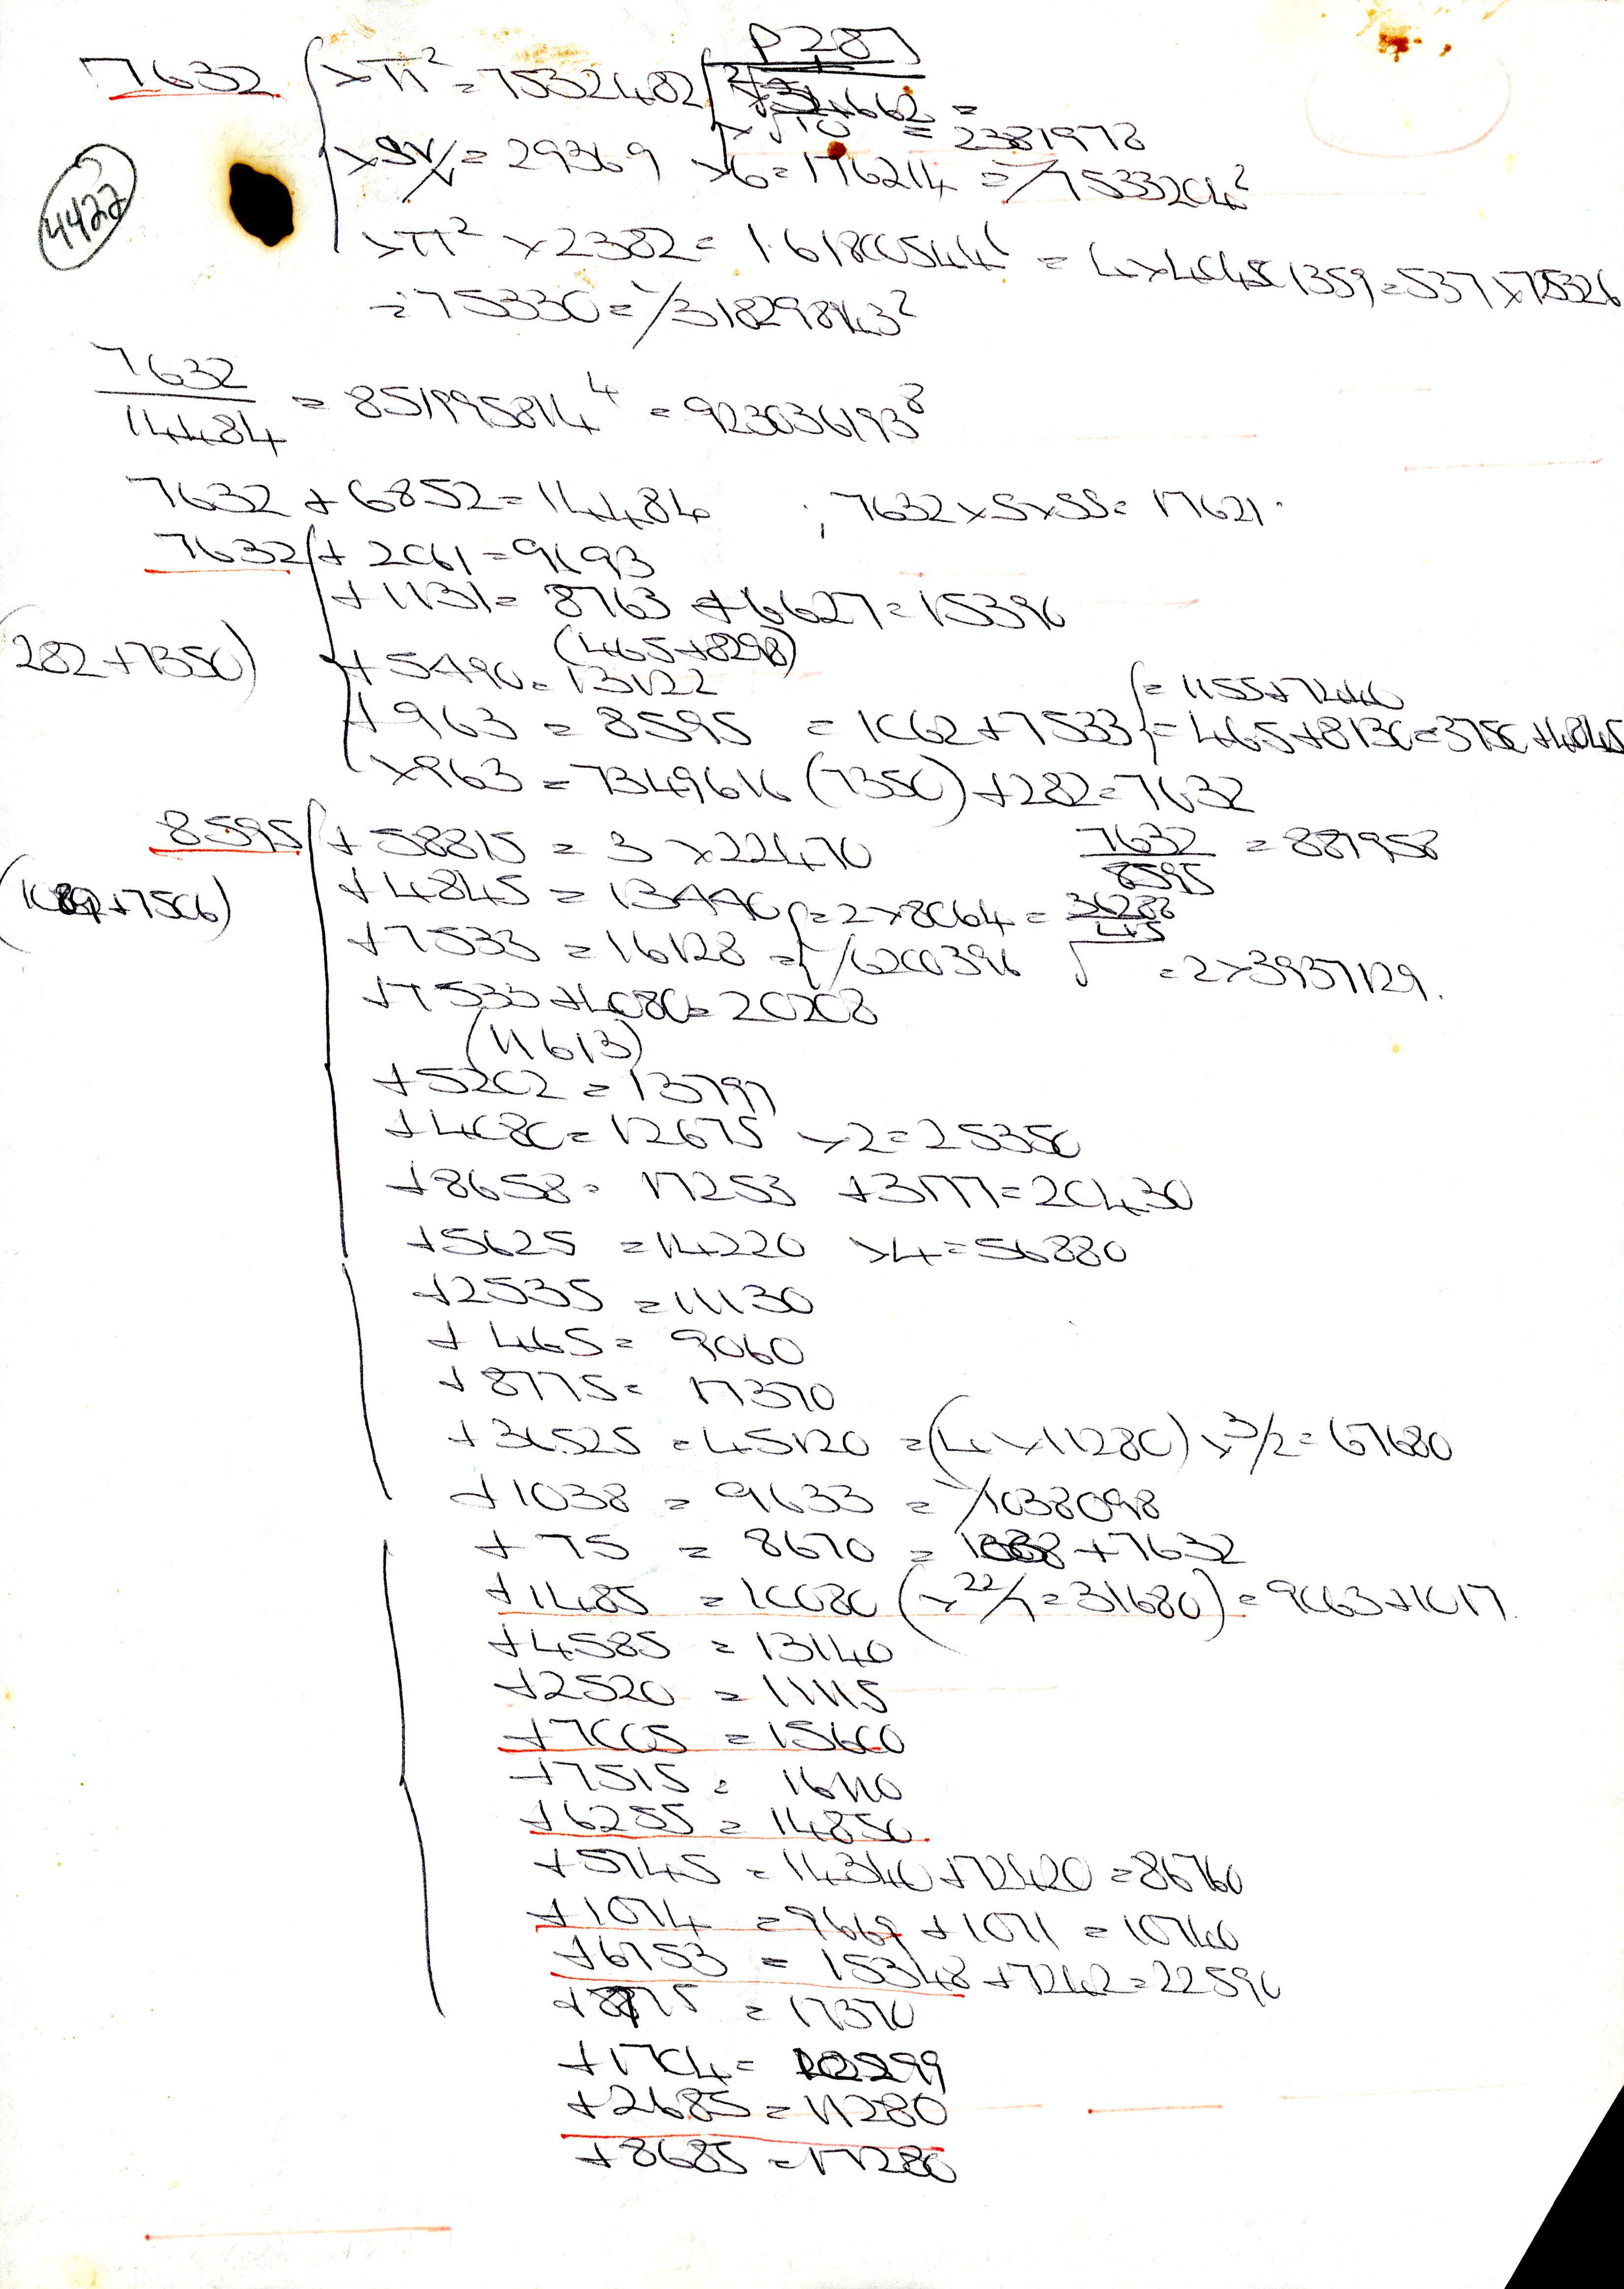 P287
7632 × π² = 7532482
× √10 = 2381978
= 29369 × 6 = 176214 = 1/7533204²
× π² × 2382 = 1.618005446 = 4 × 40451359 = 537 × 75326
= 75330 = 1/318298143²
4422
7632/14484 = 851995814⁴ = 923036193⁸
7632 + 6852 = 14484 ; 7632 × 5 × 55 = 17621.
7632 + 2061 = 9693
+ 1131 = 8763 + 6627 = 15390
(465 + 8298)
(282 + 7350) + 5490 = 13122
= 1155 + 7440
+ 963 = 8595 = 1062 + 7533 = 465 + 8130 = 3750 + 4845
× 963 = 7349616 (7350) + 282 = 7632
8595 + 58815 = 3 × 22470
7632/8595 = 887958
(1089 + 7506) + 4845 = 13440 = 2 × 8064 = 36288/4.5
+ 7533 = 16128 = 1/6200396 √ = 2 × 3937129.
+ 7533 + 4080 = 20208
(11613)
+ 5202 = 13797
+ 4080 = 12675 × 2 = 25350
+ 8658 = 17253 + 3177 = 20430
+ 5625 = 14220 × 4 = 56880
+ 2535 = 11130
+ 465 = 9060
+ 8775 = 17370
+ 36525 = 45120 = (4 × 11280) × 3/2 = 67680
+ 1038 = 9633 = 1/1038098
+ 75 = 8670 = 1038 + 7632
+ 1485 = 10080 (× 22/7 = 31680) = 9063 + 1017.
+ 4585 = 13140
+ 2520 = 11115
+ 7005 = 15600
+ 7515 = 16110
+ 6255 = 14850
+ 5745 = 14340 + 72420 = 86760
+ 1074 = 9669 + 1071 = 10740
+ 6753 = 15348 + 7242 = 22590
+ 8775 = 17370
+ 1704 = 10299
+ 2685 = 11280
+ 8685 = 17280